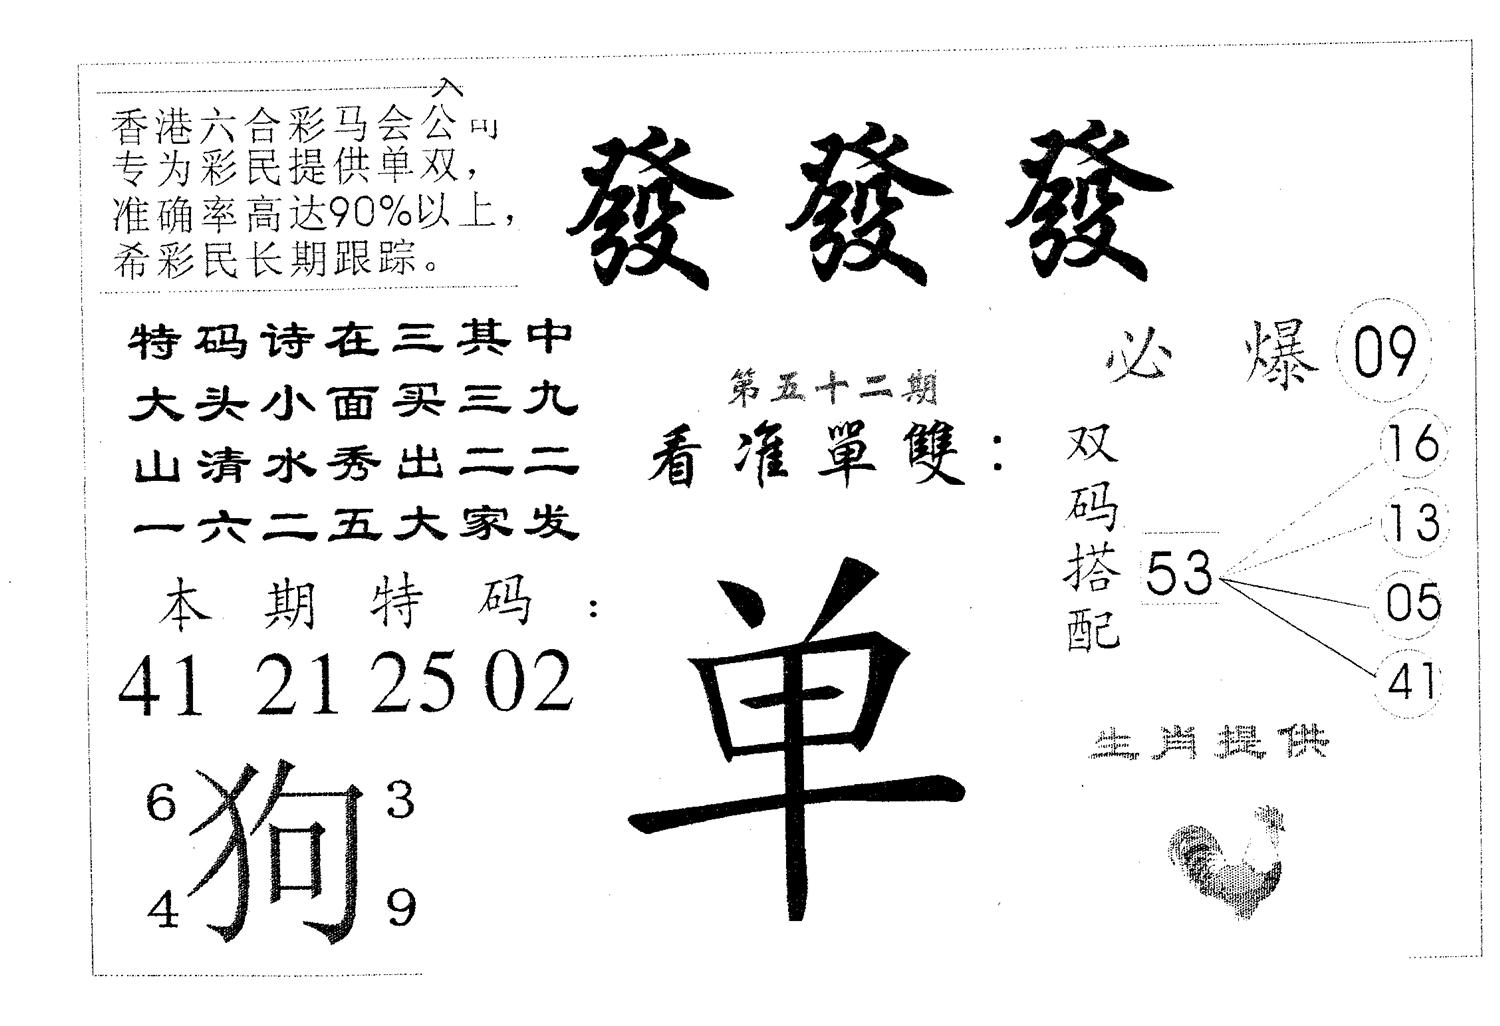 香港六合彩马会公司
专为彩民提供单双，
准确率高达90%以上，
希彩民长期跟踪。
發發發
特码诗在三其中
大头小面买三九
山清水秀出二二
一六二五大家发
本期特码：
41 21 25 02
6 狗 3
4 9
第五十二期
看准單雙：
单
必爆 09
双码搭配
53
16
13
05
41
生肖提供